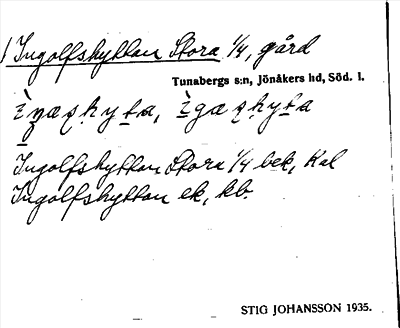 Ingolfshyttan Stora 1/4, gård
Tunabergs s:n, Jönåkers hd, Söd. l.
Ingolfshyttan Stora 1/4 bek, Kal
Ingolfshyttan ek, kb.
STIG JOHANSSON 1935.